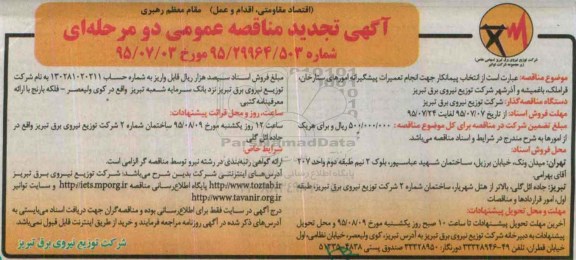 (اقتصاد مقاومتی، اقدام و عمل) مقام معظم رهبری
آگهی تجدید مناقصه عمومی دو مرحله‌ای
شماره ۹۵/۲۹۹۶۴/۵۰۳ مورخ ۹۵/۰۷/۰۳
شرکت توزیع نیروی برق تبریز
موضوع مناقصه: عبارت است از انتخاب پیمانکار جهت انجام تعمیرات پیشگیرانه امورهای سردرخان،
قراملک، باغمیشه و آذرشهر شرکت توزیع نیروی برق تبریز
دستگاه مناقصه‌گذار: شرکت توزیع نیروی برق تبریز
مهلت فروش اسناد: از تاریخ ۹۵/۰۷/۰۷ لغایت ۹۵/۰۷/۲۴
مبلغ تضمین شرکت در مناقصه برای کل موضوع مناقصه: ۵۰۰/۰۰۰/۰۰۰ ریال و برای هریک
از امورها به شرح مندرج در شرایط و اسناد مناقصه می‌باشد.
محل فروش اسناد:
تهران: میدان ونک، خیابان برزیل، ساختمان شهید عباسپور، بلوک ۲ نیم طبقه دوم واحد ۲۰۷
آقای بهرامی.
تبریز: جاده ائل گلی، بالاتر از هتل شهریار، ساختمان شماره ۲ شرکت توزیع نیروی برق تبریز، طبقه
اول، امور قراردادها و مناقصات
مهلت و محل تحویل پیشنهادات:
آخرین مهلت تحویل پیشنهادات تا ساعت ۱۰ صبح روز یکشنبه مورخ ۹۵/۰۸/۰۹ و محل تحویل
پیشنهادات به دبیرخانه شرکت توزیع نیروی برق تبریز به آدرس تبریز، کوی ولیعصر، خیابان نظامی، اول
خیابان قطران، تلفن ۴۹-۳۳۳۲۸۹۴۶ دورنگار: ۳۳۳۲۸۹۵۰ صندوق پستی
مبلغ فروش اسناد سیصد هزار ریال قابل واریز به شماره حساب ۱۳۰۲۸۱۰۲۰۲۱۱ به نام شرکت
توزیع نیروی برق تبریز نزد بانک سرمایه شعبه تبریز واقع در کوی ولیعصر - فلکه بارنج با ارائه
معرفینامه کتبی.
ساعت، روز و محل قرائت پیشنهادات:
ساعت ۱۲ روز یکشنبه مورخ ۹۵/۰۸/۰۹ ساختمان شماره ۲ شرکت توزیع نیروی برق تبریز واقع در
جاده ائل گلی
شرایط خاص:
ارائه گواهی رتبه‌بندی در رشته نیرو توسط مناقصه گر الزامی است.
آدرس‌های اینترنتی شرکت بدین شرح می‌باشد: شرکت توزیع نیروی برق تبریز
http://www.toztab.ir پایگاه اطلاع رسانی مناقصه http://iets.mporg.ir و سایت توانیر
http://www.tavanir.org.ir
درج آگهی در سایت فقط برای اطلاع‌رسانی بوده و مناقصه‌گران جهت دریافت اسناد می‌بایستی به
آدرس‌های ذکر شده در آگهی روزنامه مراجعه فرمایند و خرید از طریق اینترنت قابل قبول نمی‌باشد.
شرکت توزیع نیروی برق تبریز